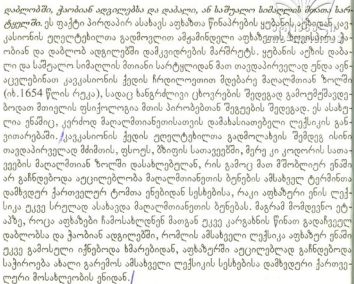 დაბლობში, ჭაობიან ადგილებსა და დაბალი, ან საშუალო სიმაღლის მთიან სარ-
ტყელში. ეს ფაქტი პირდაპირ ასახავს აფხაზთა წინაპრების ყუბანის აუზიდან კავ-
კასიონის უღელტეხილთა გადმოვლით ამჟამინდელი აფხაზეთის ზღვისპირა ჭა-
ობიან და დაბლობ ადგილებში დამკვიდრების მარშრუტს, ყუბანის აუზის დაბა-
ლი და საშუალო სიმაღლის მთიანი სარტყლიდან მათ თავდაპირველად უნდა აეწ-
აცვლებინათ კავკასიონის ქედის ჩრდილოეთით მდებარე მაღალმთიან ზოლში
(იხ.1654 წლის რუკა), სადაც ხანგრძლივი ცხოვრების შედეგად გამოუმუშავდე-
ბოდათ მთიელის ფსიქოლოგია მთის პირობებთან შეგუების შედეგად. ეს ასახუ-
ლია ენაშიც, კერძოდ მაღალმთიანეთისათვის დამახასიათებელი ლექსიკის გან-
ვითარებაში. კავკასიონის ქედის უღელტეხილთა გადმოლახვის შემდეგ ისინი
თავდაპირველად მძიმთის, ფსოუს, ბზიფის სათავეებში, მერე კი კოდორის სათა-
ვეების მაღალმთიან ზოლში დასახლებულან, რის გამოც მათ მშობლიურ ენაში
არ გაჩნდებოდა აუცილებლობა მაღალმთიანეთის ბუნების ამსახველ ტერმინთა
დამხვდურ ქართველურ ტომთა ენებიდან სესხებისა, რაკი აფხაზური ენის ლექ-
სიკა უკვე სრულად ასახავდა მაღალმთიანეთის ბუნებას. მაგრამ მომდევნო ეტ-
აპზე, როცა აფხაზები ჩამოსახლდნენ მათგან უკვე კარგახნის წინათ გადაჩვეულ
დაბლობსა და ჭაობიან ადგილებში, რომლის ამსახველი ლექსიკა აფხაზურ ენაში
უკვე გამოსული იქნებოდა ხმარებიდან, აფხაზურში აუცილებლად გაჩნდებოდა
საჭიროება ახალი გარემოს ამსახველი ლექსიკის სესხებისა დამხვდური ქართვე-
ლური მოსახლეობის ენიდან.